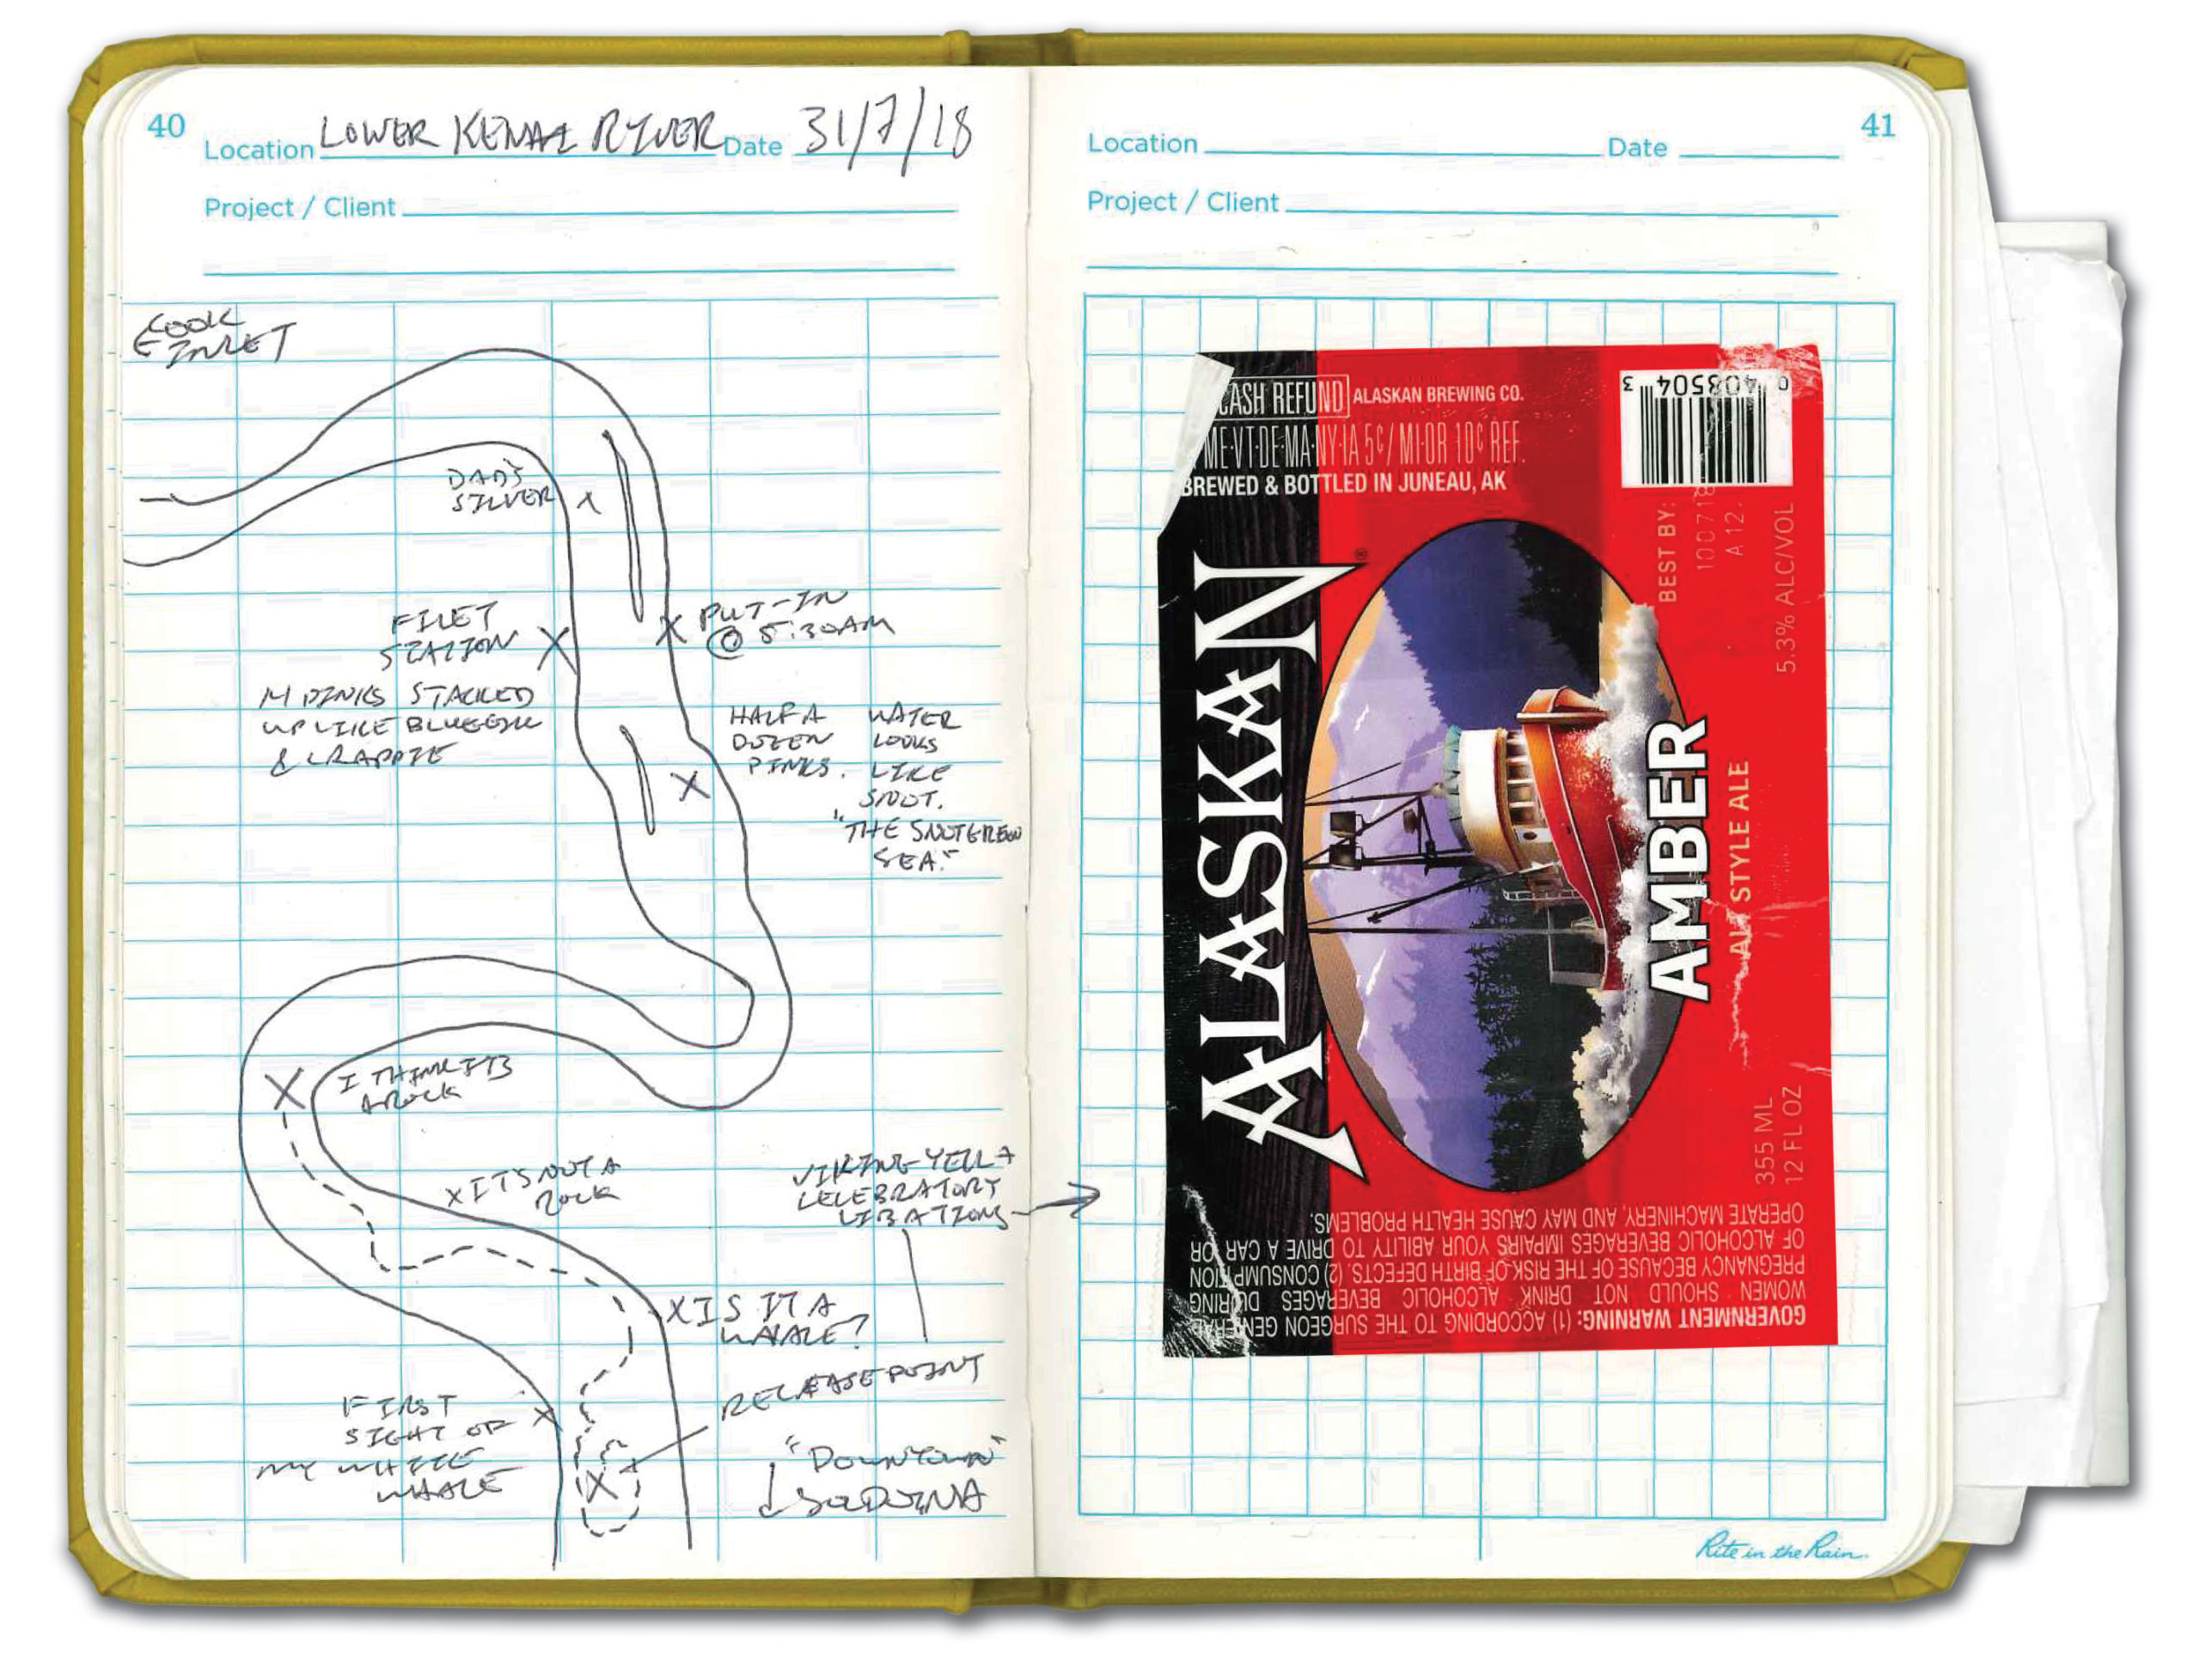 40
Location LOWER KENAI RIVER Date 31/7/18
Project / Client
COOK
INLET
DAD'S
SILVER
FILET
STATION
PUT-IN
@ 5:30AM
14 PINKS STACKED
UP LIKE BLUEGILL
& CRAPPIE
HALF A
DOZEN
PINKS.
WATER
LOOKS
LIKE
SNOT.
"THE SNOTGREEN
SEA."
I THINK IT'S
A ROCK
X IT'S NOT A
ROCK
VIKING YELL +
CELEBRATORY
LIBATIONS
X IS IT A
WHALE?
RELEASE POINT
FIRST
SIGHT OF
MY WHITE
WHALE
"DOWNTOWN"
SOLDOTNA
41
Location Date
Project / Client
CASH REFUND ALASKAN BREWING CO.
ME·VT·DE·MA·NY·IA 5¢/ MI·OR 10¢ REF.
BREWED & BOTTLED IN JUNEAU, AK
ALASKAN®
AMBER
ALT STYLE ALE
BEST BY:
100718
A12
5.3% ALC/VOL
355 ML
12 FL OZ
GOVERNMENT WARNING: (1) ACCORDING TO THE SURGEON GENERAL
WOMEN SHOULD NOT DRINK ALCOHOLIC BEVERAGES DURING
PREGNANCY BECAUSE OF THE RISK OF BIRTH DEFECTS. (2) CONSUMPTION
OF ALCOHOLIC BEVERAGES IMPAIRS YOUR ABILITY TO DRIVE A CAR OR
OPERATE MACHINERY, AND MAY CAUSE HEALTH PROBLEMS.
Rite in the Rain